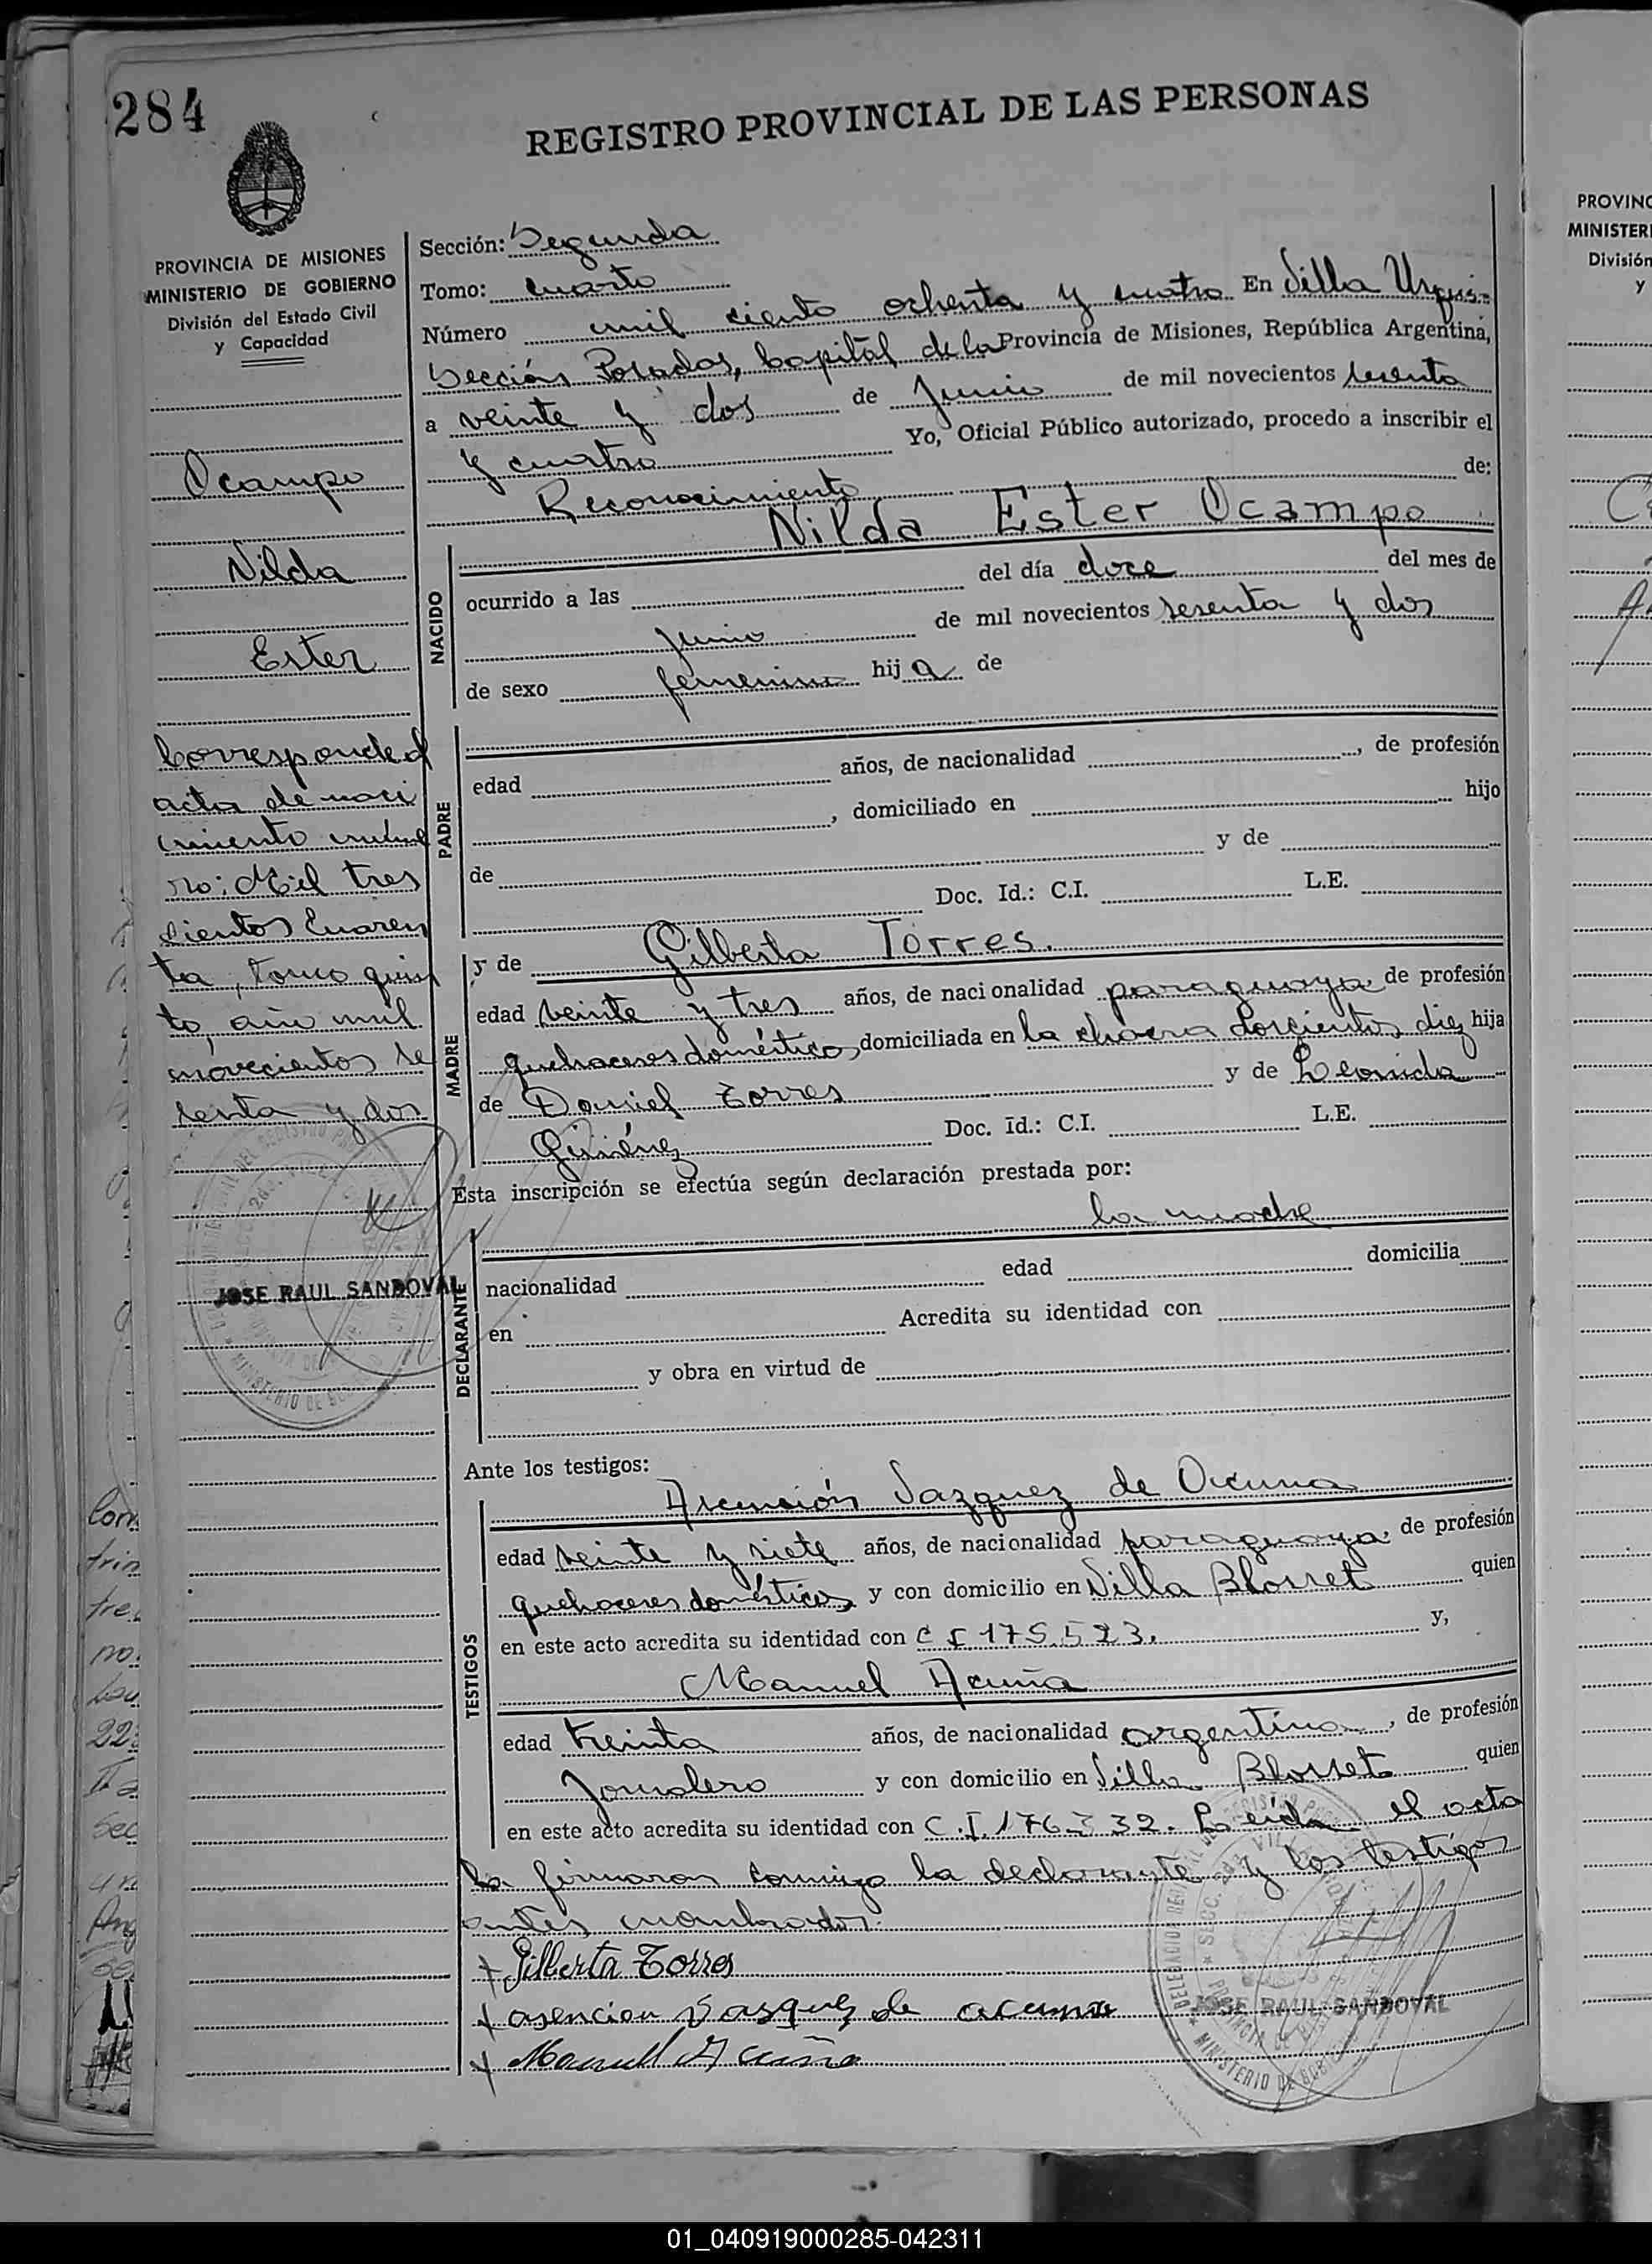 284
REGISTRO PROVINCIAL DE LAS PERSONAS
PROVINCIA DE MISIONES
MINISTERIO DE GOBIERNO
División del Estado Civil
y Capacidad
Ocampo
Nilda
Ester
Corresponde al
acta de naci
miento núme
ro: Mil tres
cientos Cuaren
ta, tomo quin
to, año mil
novecientos se
senta y dos
JOSE RAUL SANDOVAL
Sección: Segunda
Tomo: cuarto
Número mil ciento ochenta y cuatro En Villa Urquis-
Sección Posadas, Capital de la Provincia de Misiones, República Argentina,
a veinte y dos de Junio de mil novecientos sesenta
y cuatro Yo, Oficial Público autorizado, procedo a inscribir el
Reconocimiento de:
NACIDO
Nilda Ester Ocampo
ocurrido a las del día doce del mes de
junio de mil novecientos sesenta y dos
de sexo femenino hija de
PADRE
edad años, de nacionalidad , de profesión
, domiciliado en hijo
de y de
Doc. Id.: C.I. L.E.
MADRE
y de Gilberta Torres.
edad veinte y tres años, de nacionalidad paraguaya, de profesión
quehaceres doméstico, domiciliada en la chacra doscientos diez hija
de Daniel Torres y de Leonida
Giménez Doc. Id.: C.I. L.E.
Esta inscripción se efectúa según declaración prestada por:
la madre
DECLARANTE
nacionalidad edad domicilia
en Acredita su identidad con
y obra en virtud de
Ante los testigos:
TESTIGOS
Ascensión Vazquez de Acuna
edad veinte y siete años, de nacionalidad paraguaya, de profesión
quehaceres domésticos y con domicilio en Villa Blosset quien
en este acto acredita su identidad con C I 175.523. y,
Manuel Acuña
edad treinta años, de nacionalidad argentino, de profesión
Jornalero y con domicilio en Villa Blosset quien
en este acto acredita su identidad con C.I. 176.332. Leida el acta
la firmaron conmigo la declarante y los testigos
antes nombrados.
Gilberta Torres
asencion Vasquez de acuna
Manuel Acuña
JOSE RAUL SANDOVAL
PROVINC
MINISTERI
División
y
01_040919000285-042311